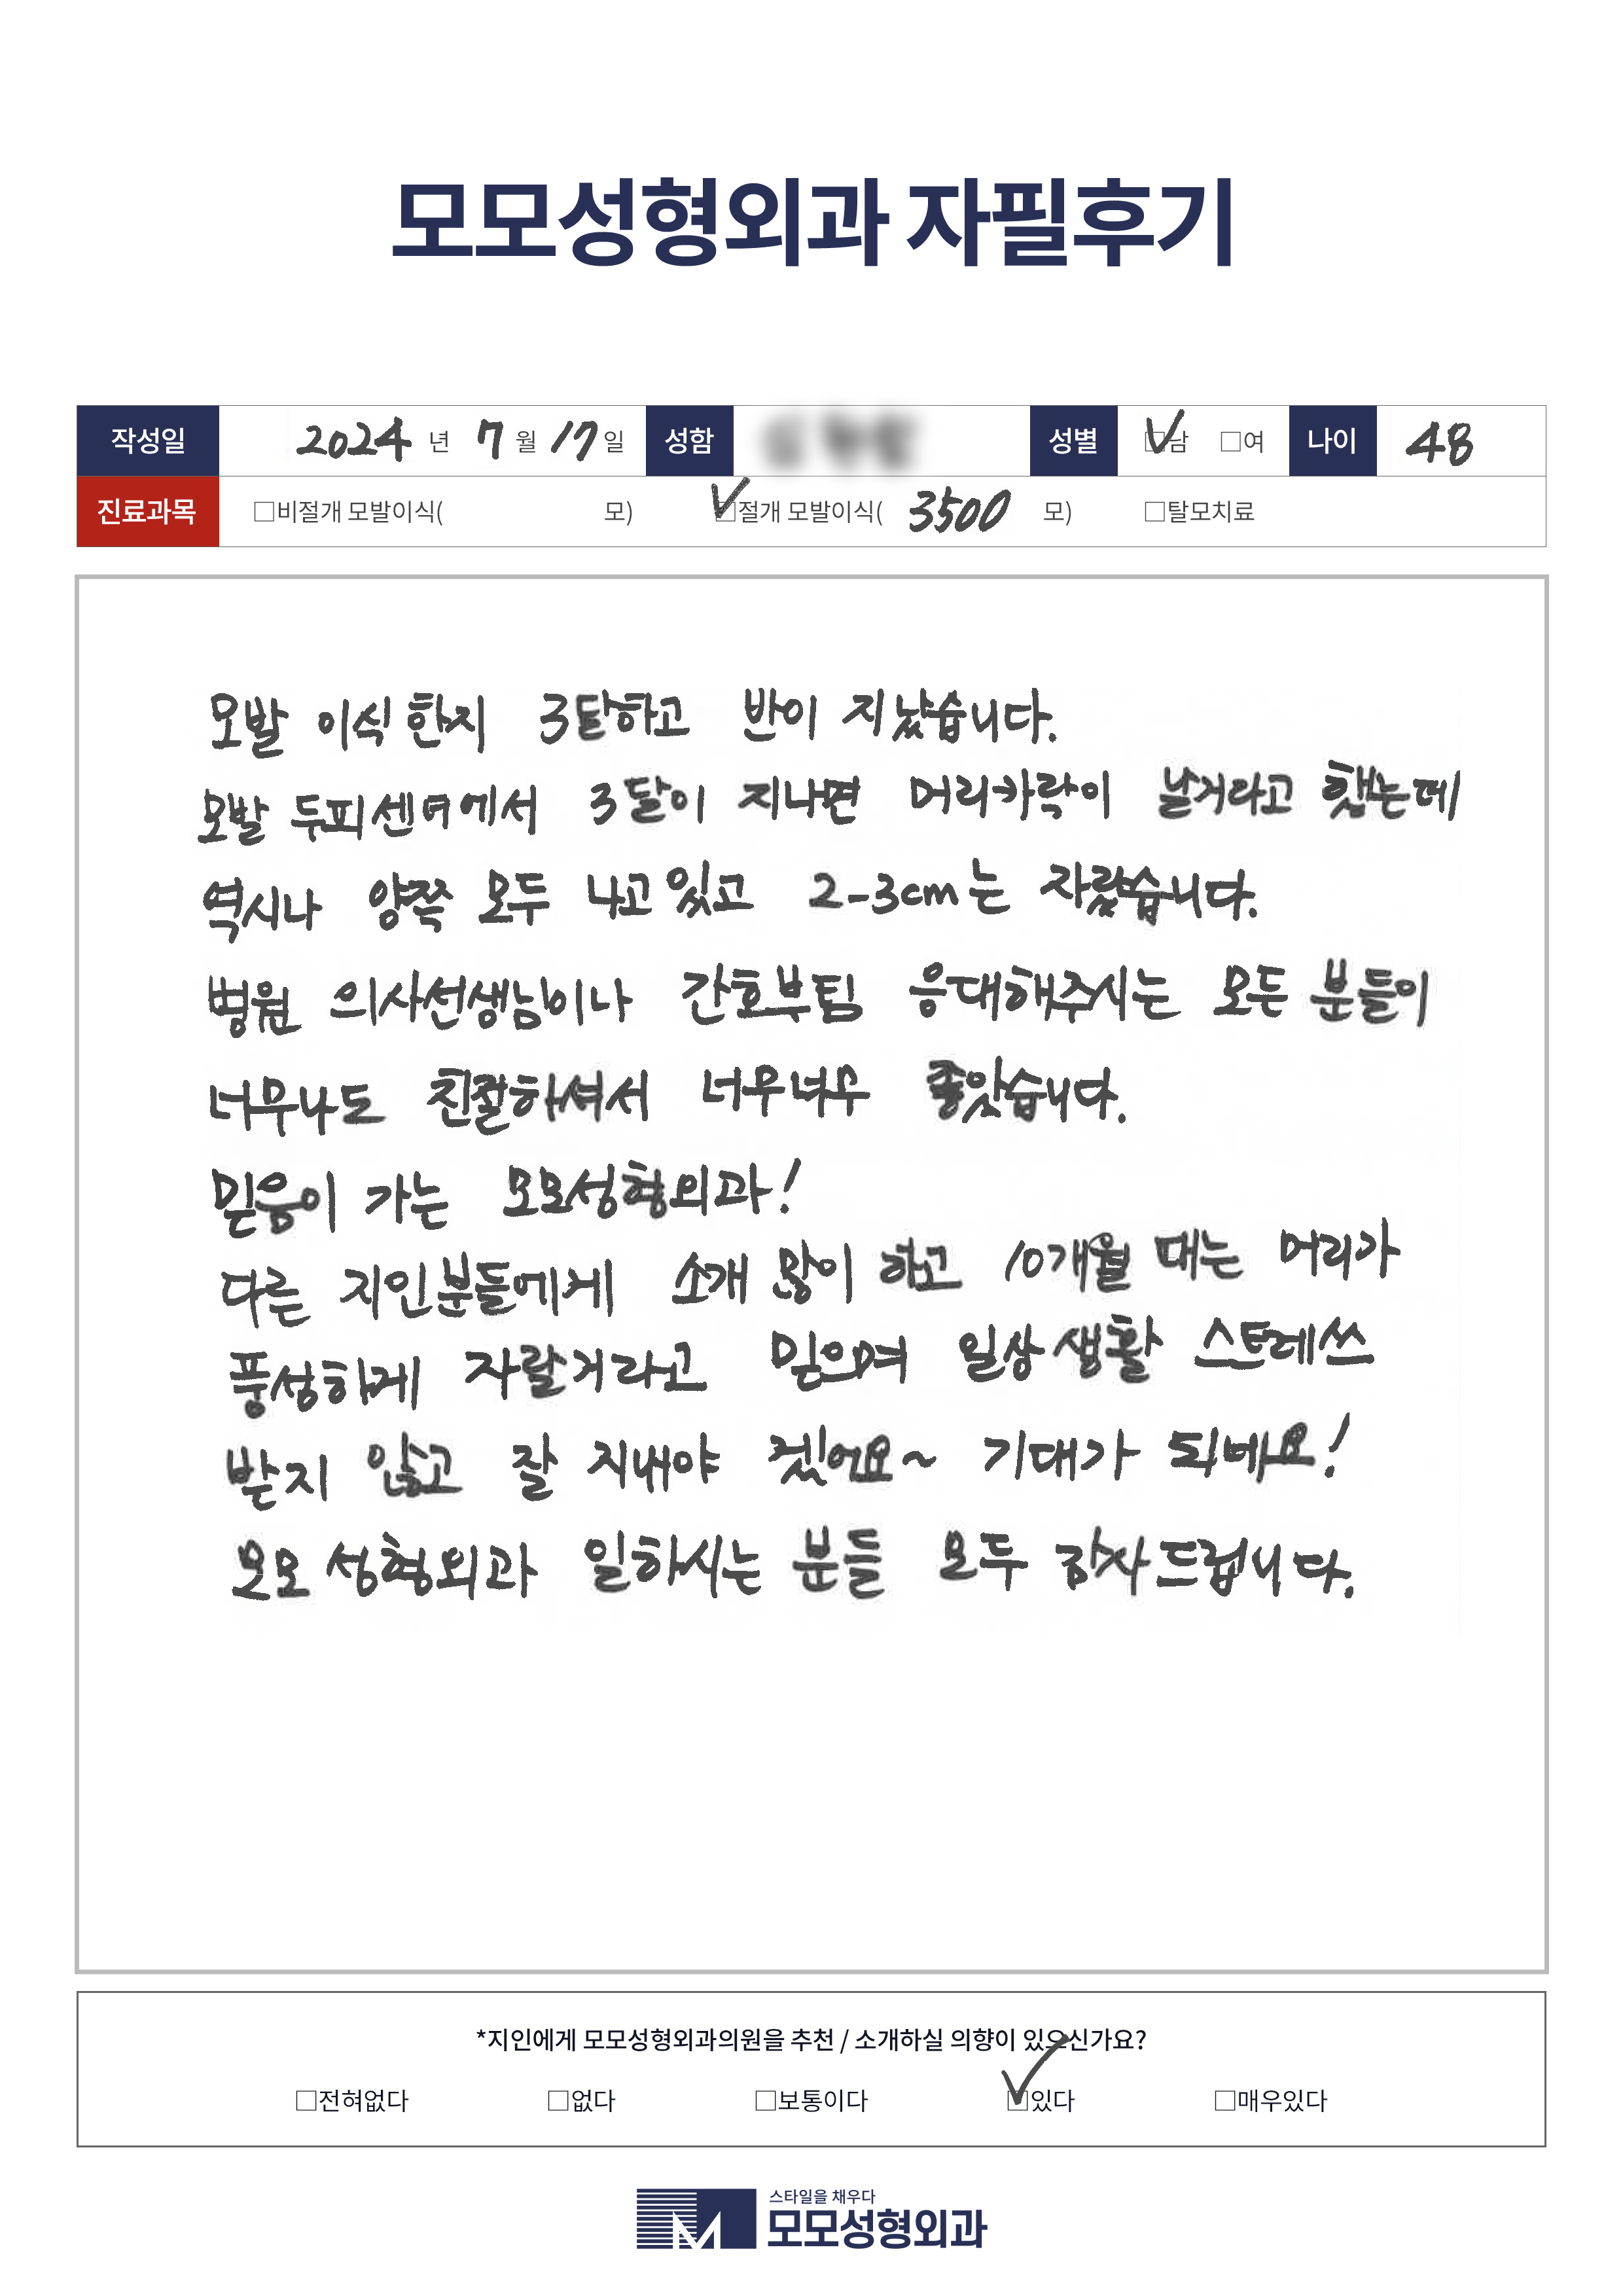 모모성형외과 자필후기
작성일 2024 년 7 월 17 일 성함 성별 ☑남 □여 나이 48
진료과목 □비절개 모발이식( 모) ☑절개 모발이식( 3500 모) □탈모치료
모발 이식한지 3달하고 반이 지났습니다.
모발 두피센터에서 3달이 지나면 머리카락이 날거라고 했는데
역시나 양쪽 모두 나고 있고 2-3cm는 자랐습니다.
병원 의사선생님이나 간호부팀 응대해주시는 모든 분들이
너무나도 친절하셔서 너무너무 좋았습니다.
믿음이 가는 모모성형외과!
다른 지인분들에게 소개 많이 하고 10개월 때는 머리가
풍성하게 자랄거라고 믿으며 일상생활 스트레쓰
받지 않고 잘 지내야 겠어요~ 기대가 되네요!
모모성형외과 일하시는 분들 모두 감사드립니다.
*지인에게 모모성형외과의원을 추천 / 소개하실 의향이 있으신가요?
□전혀없다 □없다 □보통이다 ☑있다 □매우있다
스타일을 채우다
모모성형외과